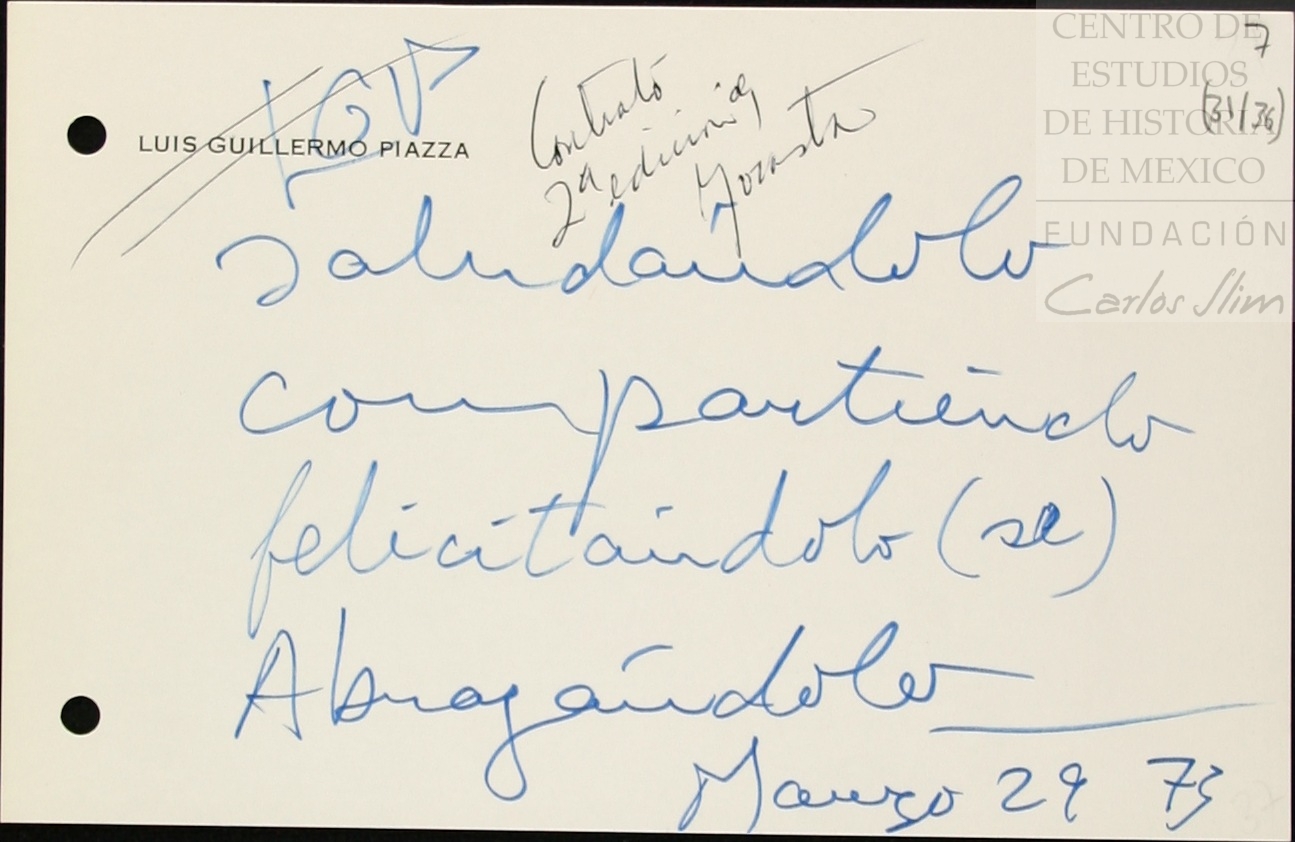 LGP
LUIS GUILLERMO PIAZZA
Contrato
2a edición de
Yocasta
7
(31/36)
CENTRO DE
ESTUDIOS
DE HISTORIA
DE MEXICO
FUNDACIÓN
Carlos Slim
saludándolo
compartiendo
felicitándolo (se)
Abrazándolo
Marzo 29 73